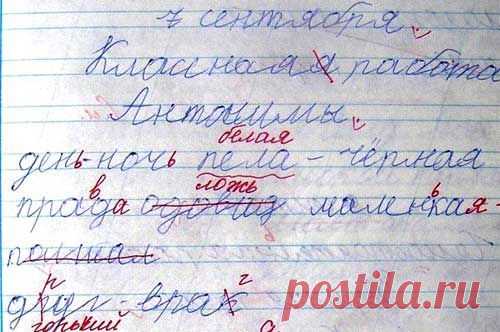 7 сентября.
Классная работа
Антонимы.
белая
день-ночь пела - чёрная
ложь
правда маленькая-
друг - враг
горький
postila.ru